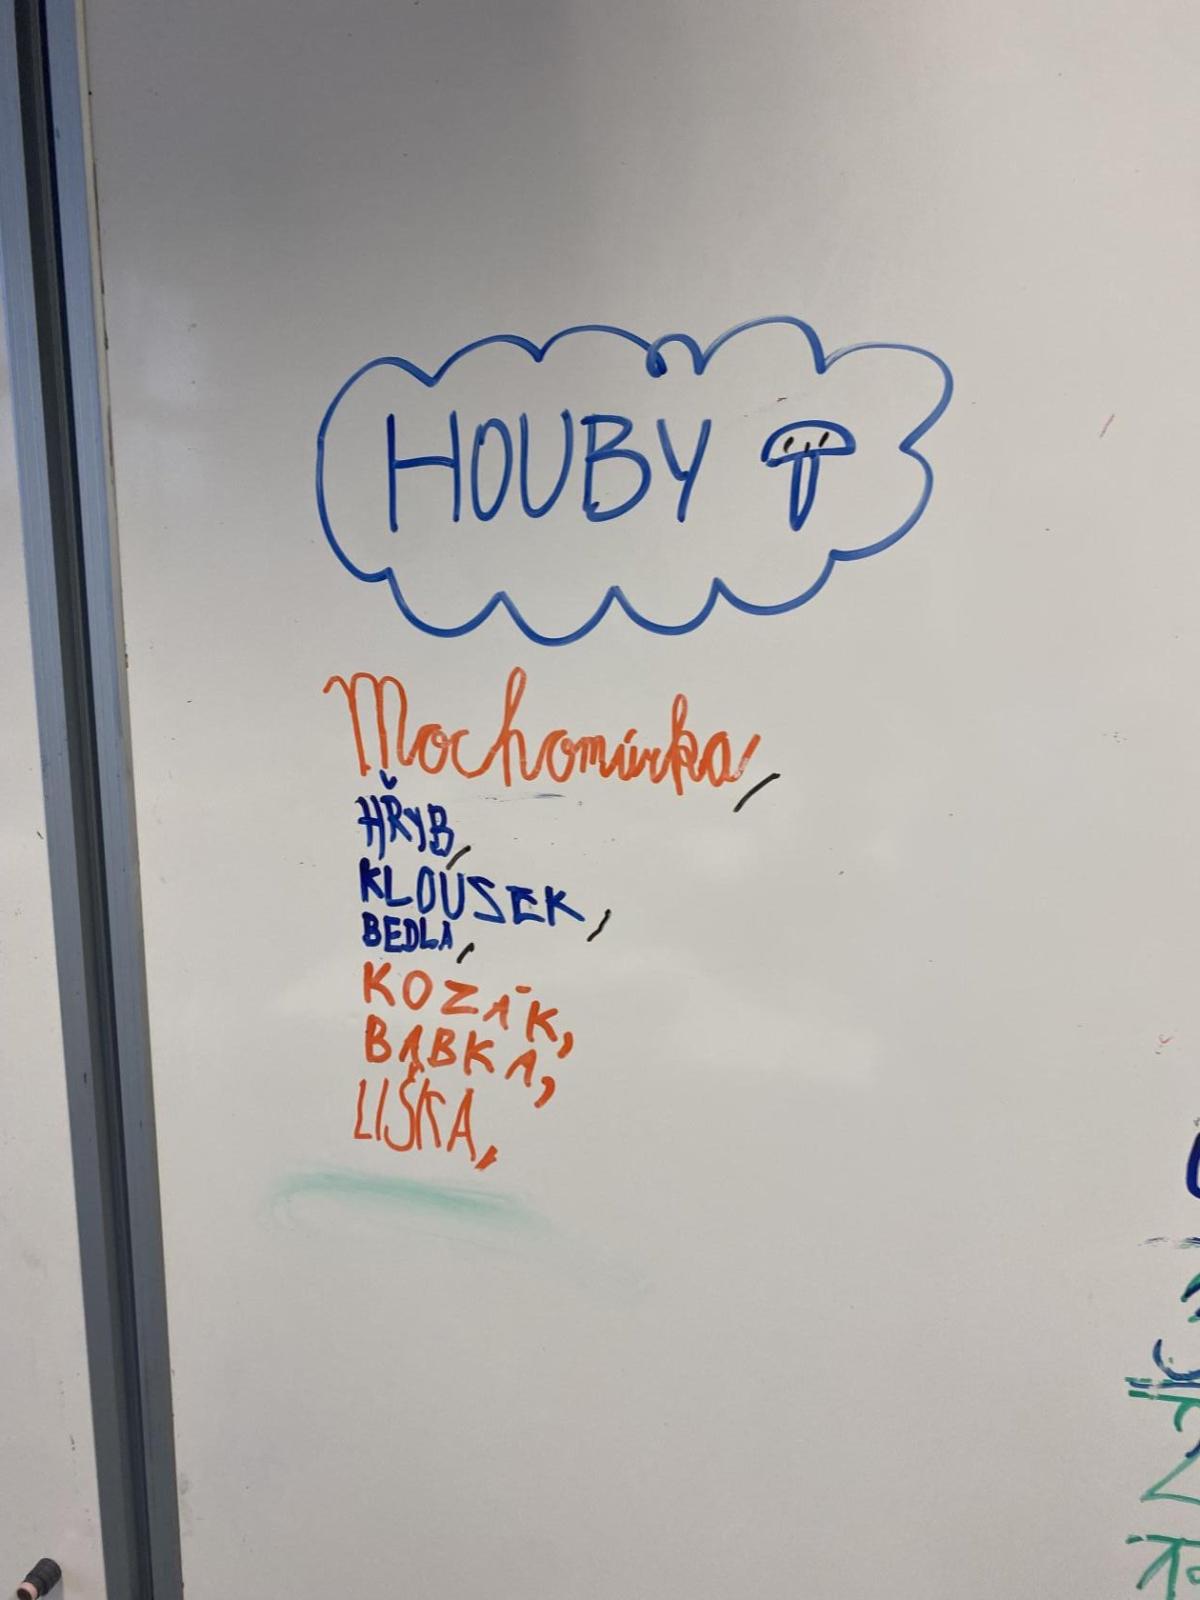 HOUBY
Mochomúrka,
HŘYB,
KLOUSEK,
BEDLA,
KOZÁK,
BABKA,
LIŠKA,